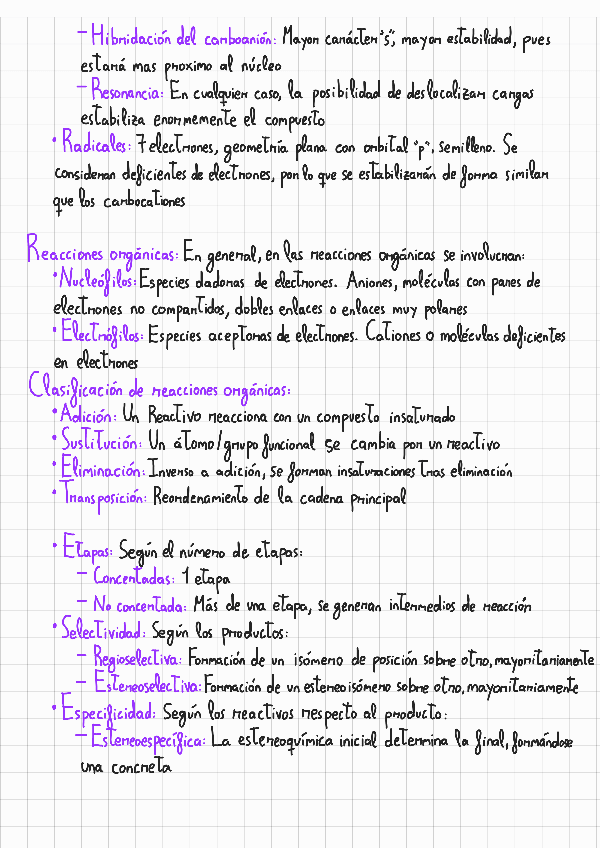 - Hibridación del carboanión: Mayor carácter "s", mayor estabilidad, pues
estará mas proximo al núcleo
- Resonancia: En cualquier caso, la posibilidad de deslocalizar cargas
estabiliza enormemente el compuesto
• Radicales: 7 electrones, geometría plana con orbital "p", semilleno. Se
consideran deficientes de electrones, por lo que se estabilizarán de forma similar
que los carbocationes
Reacciones orgánicas: En general, en las reacciones orgánicas se involucran:
• Nucleófilos: Especies dadoras de electrones. Aniones, moléculas con pares de
electrones no compartidos, dobles enlaces o enlaces muy polares
• Electrófilos: Especies aceptoras de electrones. Cationes o moléculas deficientes
en electrones
Clasificación de reacciones orgánicas:
• Adición: Un Reactivo reacciona con un compuesto insaturado
• Sustitución: Un átomo/grupo funcional se cambia por un reactivo
• Eliminación: Inverso a adición, se forman insaturaciones tras eliminación
• Transposición: Reordenamiento de la cadena principal
• Etapas: Según el número de etapas:
- Concertadas: 1 etapa
- No concertada: Más de una etapa, se generan intermedios de reacción
• Selectividad: Según los productos:
- Regioselectiva: Formación de un isómero de posición sobre otro, mayoritariamente
- Estereoselectiva: Formación de un estereoisómero sobre otro, mayoritariamente
• Especificidad: Según los reactivos respecto al producto:
- Estereoespecífica: La estereoquímica inicial determina la final, formándose
una concreta